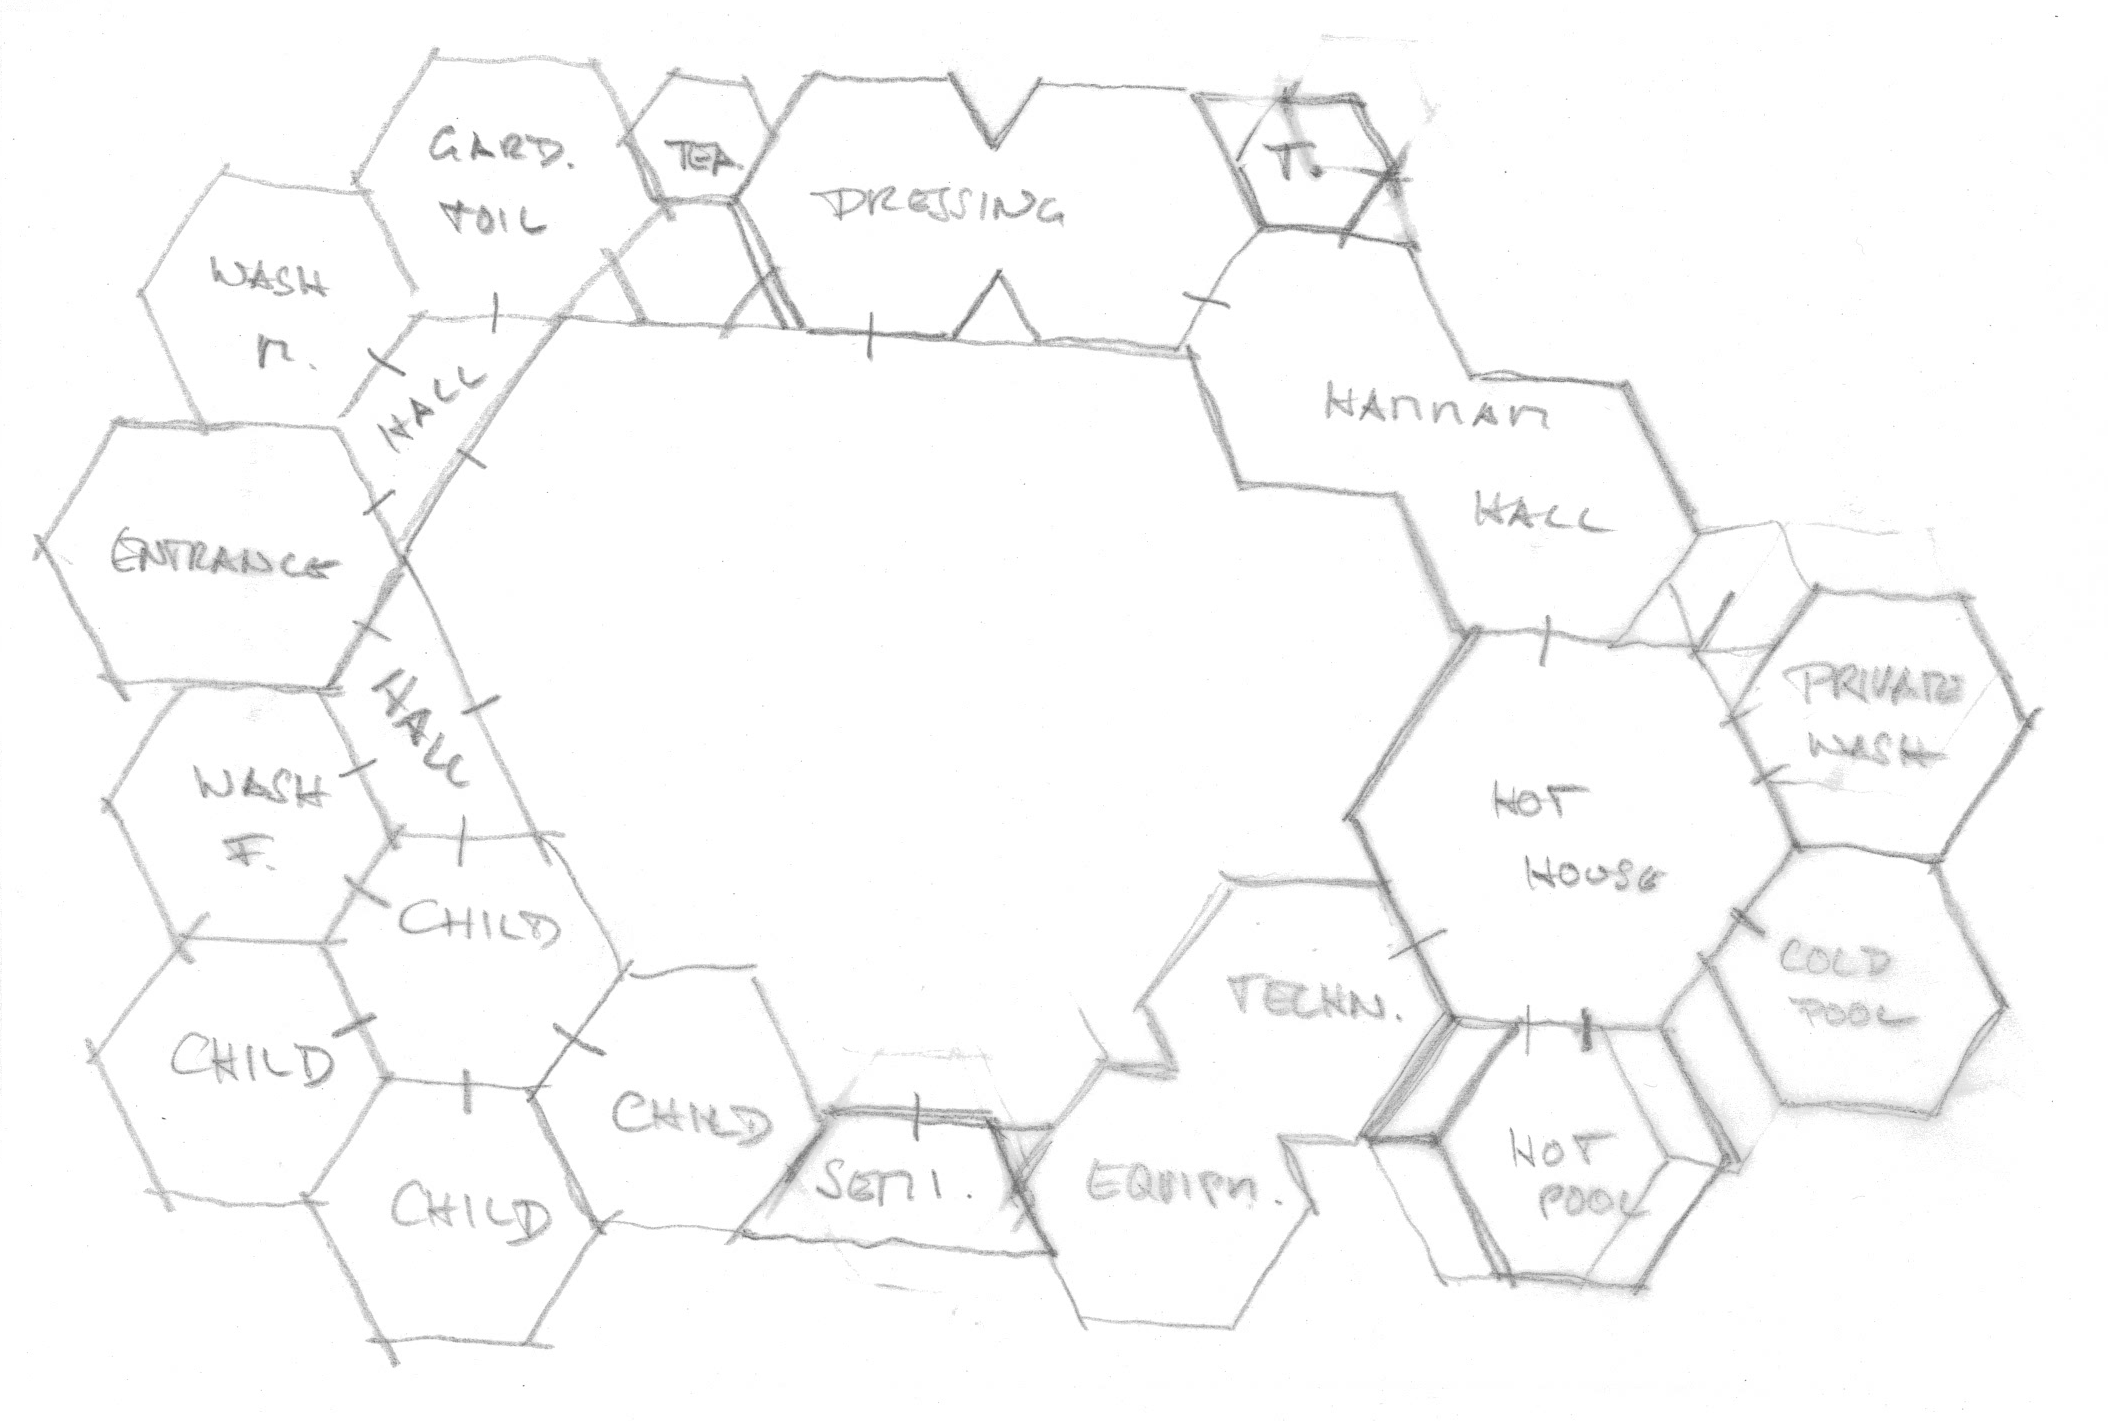 GARD.
TOIL
TEA.
DRESSING
T.
WASH
M.
HALL
HAMMAM
HALL
ENTRANCE
HALL
PRIVATE
WASH
WASH
F.
HOT
HOUSE
CHILD
COLD
POOL
TECHN.
CHILD
CHILD
SEMI.
EQUIPM.
HOT
POOL
CHILD